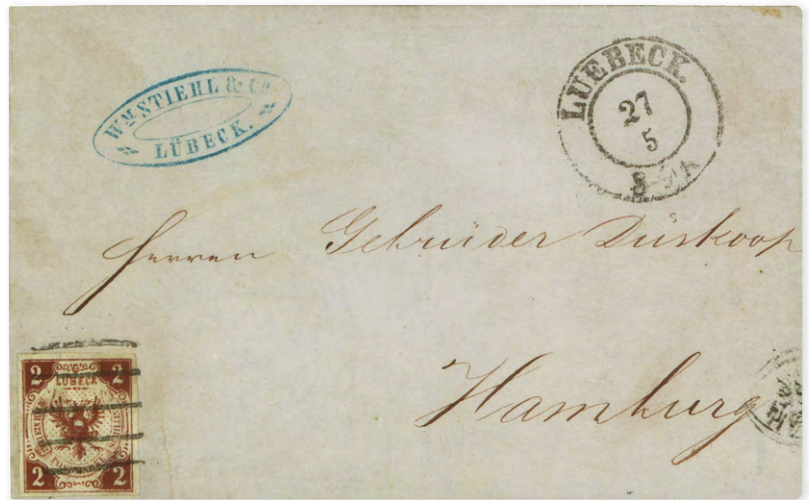 Wᴹ STIEHL & Cº
LÜBECK.
LUEBECK.
27
5
Herren Gebrüder Düskoop
Hamburg
2 2
LÜBECK
2 2